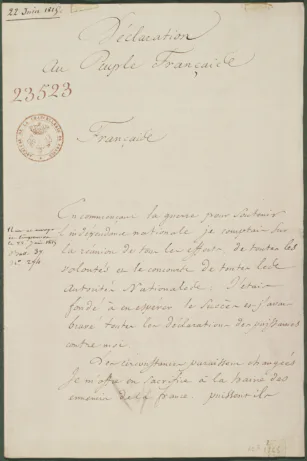 22 Juin 1815.
Déclaration
Au Peuple Française
23523
Française
En commençant la guerre pour soutenir
l'indépendance nationale je comptais sur
la réunion de tous les efforts de toutes les
volontés et le concours de toutes les
Autorités Nationales : J'étais
fondé à en espérer le Succès et j'avais
bravé toutes les déclarations des puissances
contre moi
Les circonstances paraissent changées
Je m'offre en Sacrifice à la haine des
ennemis de la france. puissent ils